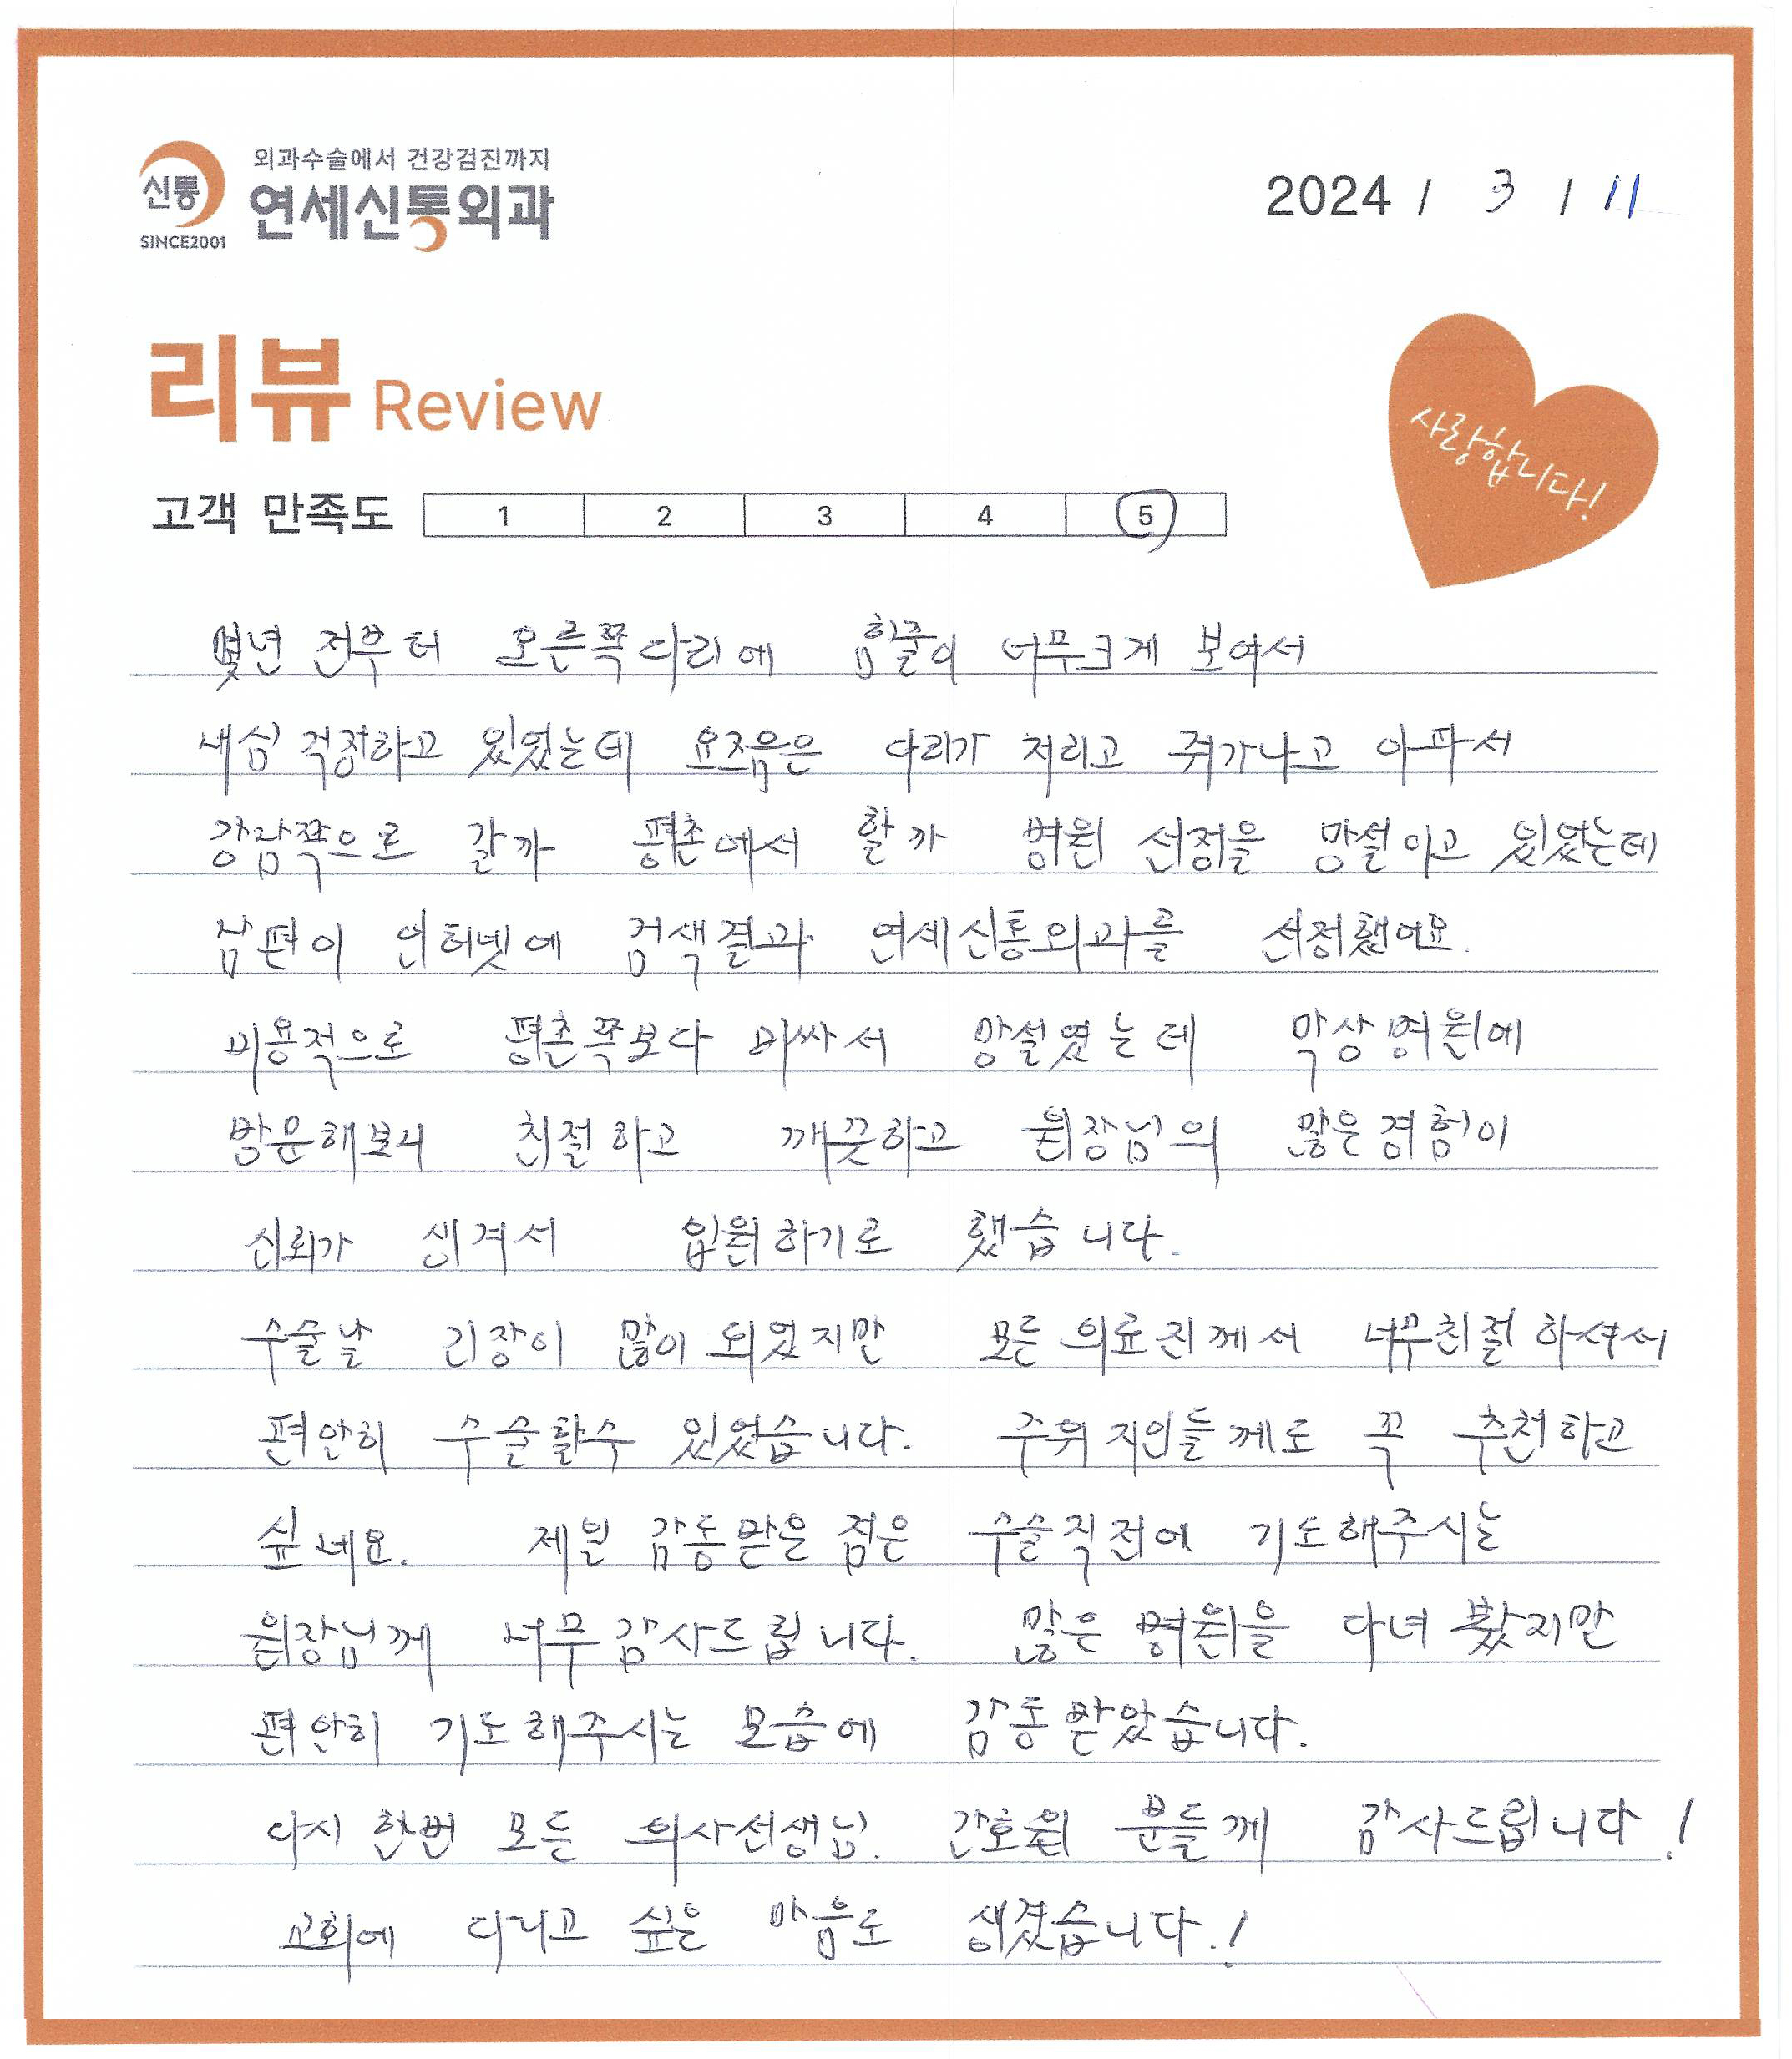 외과수술에서 건강검진까지
신통 연세신통외과
SINCE2001
2024 / 3 / 11
리뷰 Review
사랑합니다!
고객 만족도 1 2 3 4 5
몇년 전부터 오른쪽다리에 힘줄이 너무크게 보여서
내심 걱정하고 있었는데 요즈음은 다리가 저리고 쥐가나고 아파서
강남쪽으로 갈까 평촌에서 할까 병원 선정을 망설이고 있었는데
남편이 인터넷에 검색결과 연세신통외과를 선정했어요.
비용적으로 평촌쪽보다 비싸서 망설였는데 막상병원에
방문해보니 친절하고 깨끗하고 원장님의 많은경험이
신뢰가 생겨서 입원하기로 했습니다.
수술날 긴장이 많이 되었지만 모든 의료진께서 너무친절하셔서
편안히 수술할수 있었습니다. 주위 지인들께도 꼭 추천하고
싶네요. 제일 감동받은 점은 수술직전에 기도해주시는
원장님께 너무감사드립니다. 많은 병원을 다녀봤지만
편안히 기도해주시는 모습에 감동받았습니다.
다시 한번 모든 의사선생님. 간호원 분들께 감사드립니다!
교회에 다니고 싶은 마음도 생겼습니다.!